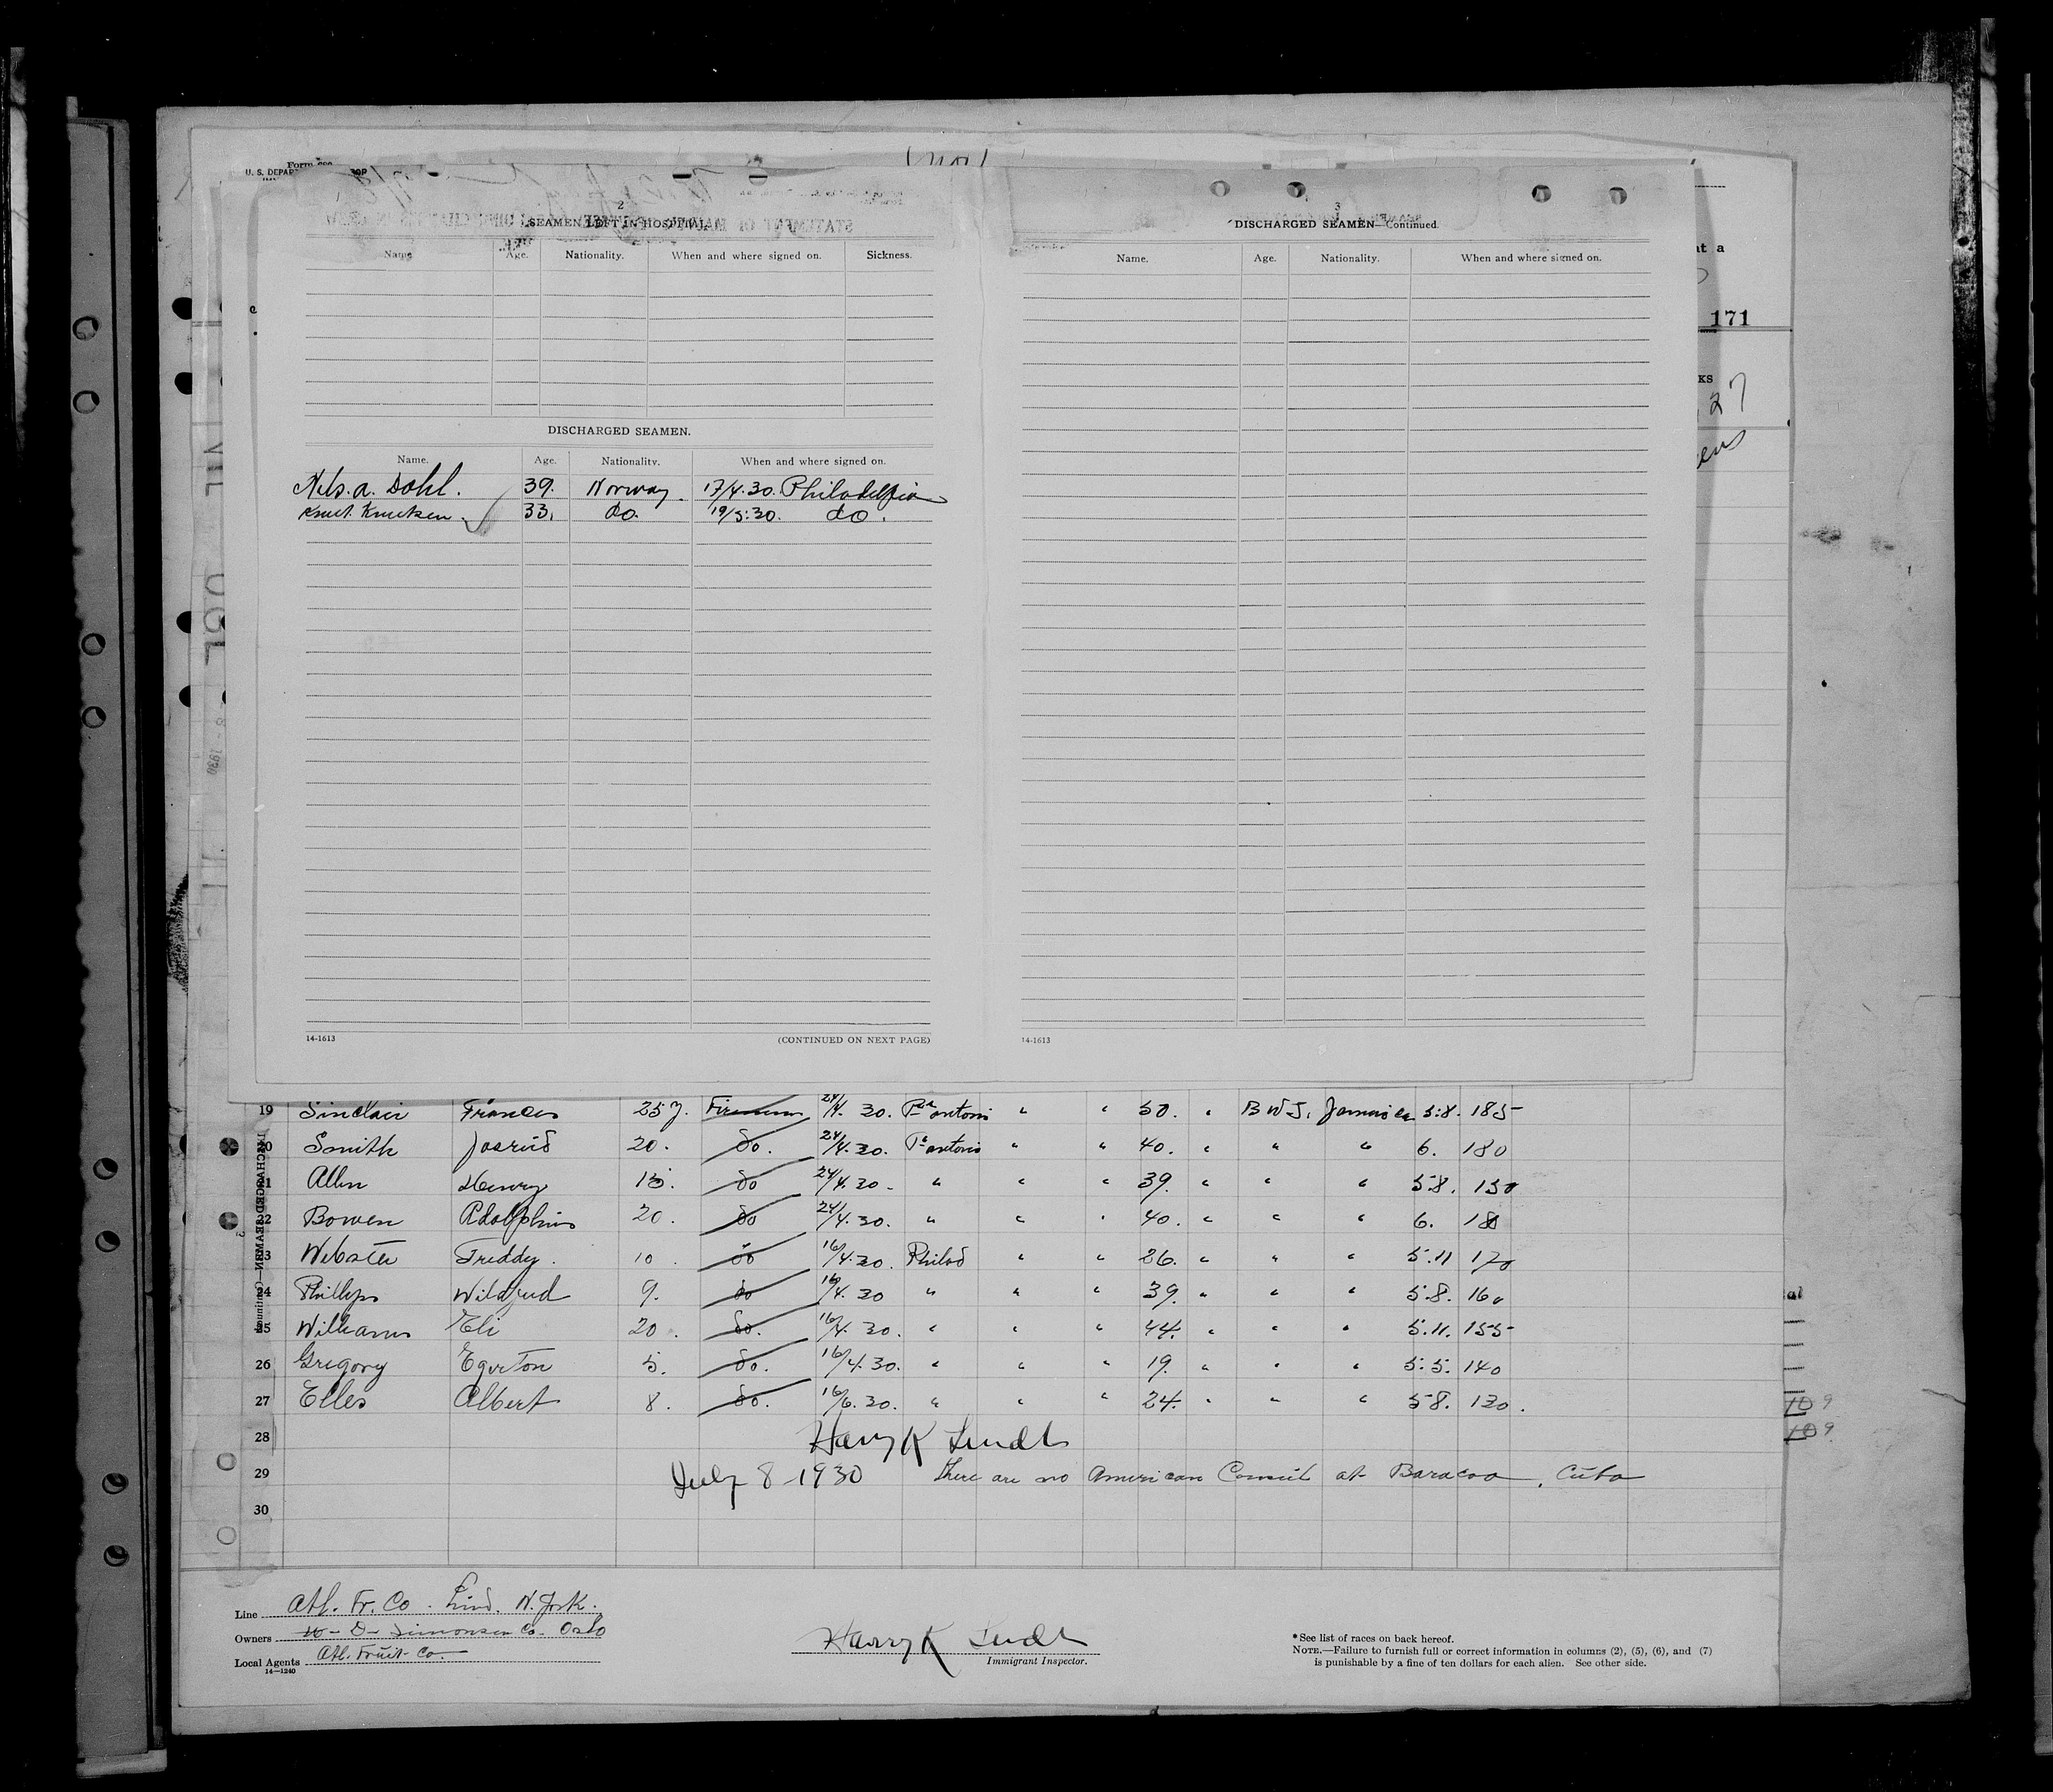 U. S. DEPAR
2
SEAMEN LEFT IN HOSPITAL.
Name. Age. Nationality. When and where signed on. Sickness.
DISCHARGED SEAMEN.
Name. Age. Nationality. When and where signed on.
Nels. a. Dahl. 39. Norway. 17/4.30. Philadelphia
Knut. Knutsen. 33. do. 19/5.30. do.
14-1613 (CONTINUED ON NEXT PAGE)
3
DISCHARGED SEAMEN—Continued.
Name. Age. Nationality. When and where signed on.
14-1613
at a
171
KS
27
19 Sinclair Frances 25 y. Fireman 24/4. 30. Pt antonio " " 50. " B W J. Jamaica 5:8. 185
20 Smith 20. do. 24/4.30. Pt antonio " " 40. " " " 6. 180
21 Allen Henry 15. do 24/4.30. " " 39. " " " 5.8. 150
22 Bowen Adolphus 20. do 24/4.30. " " " 40. " " " 6. 18
23 Webster Freddy. 10. do 16/4.30. Philad " " 26. " " " 5.11 170
24 Phillips Wildfred 9. do 16/4.30 " " " 39. " " " 5.8. 160
25 Williams Eli 20. do. 16/4.30. " " " 44. " " " 5.11. 155
26 Gregory Egerton 5. do. 16/4.30. " " " 19. " " " 5.5. 140
27 Elles Albert 8. do. 16/6.30. " " " 24. " " " 5.8. 130.
28 Harry K
29 July 8-1930 There are no American Consul at Baracoa, Cuba
30
Line Atl. Fr. Co. N. York.
Owners Simonsen Co. Oslo
Local Agents Atl. Fruit Co.
14—1240
Harry K
Immigrant Inspector.
* See list of races on back hereof.
NOTE.—Failure to furnish full or correct information in columns (2), (5), (6), and (7)
is punishable by a fine of ten dollars for each alien. See other side.